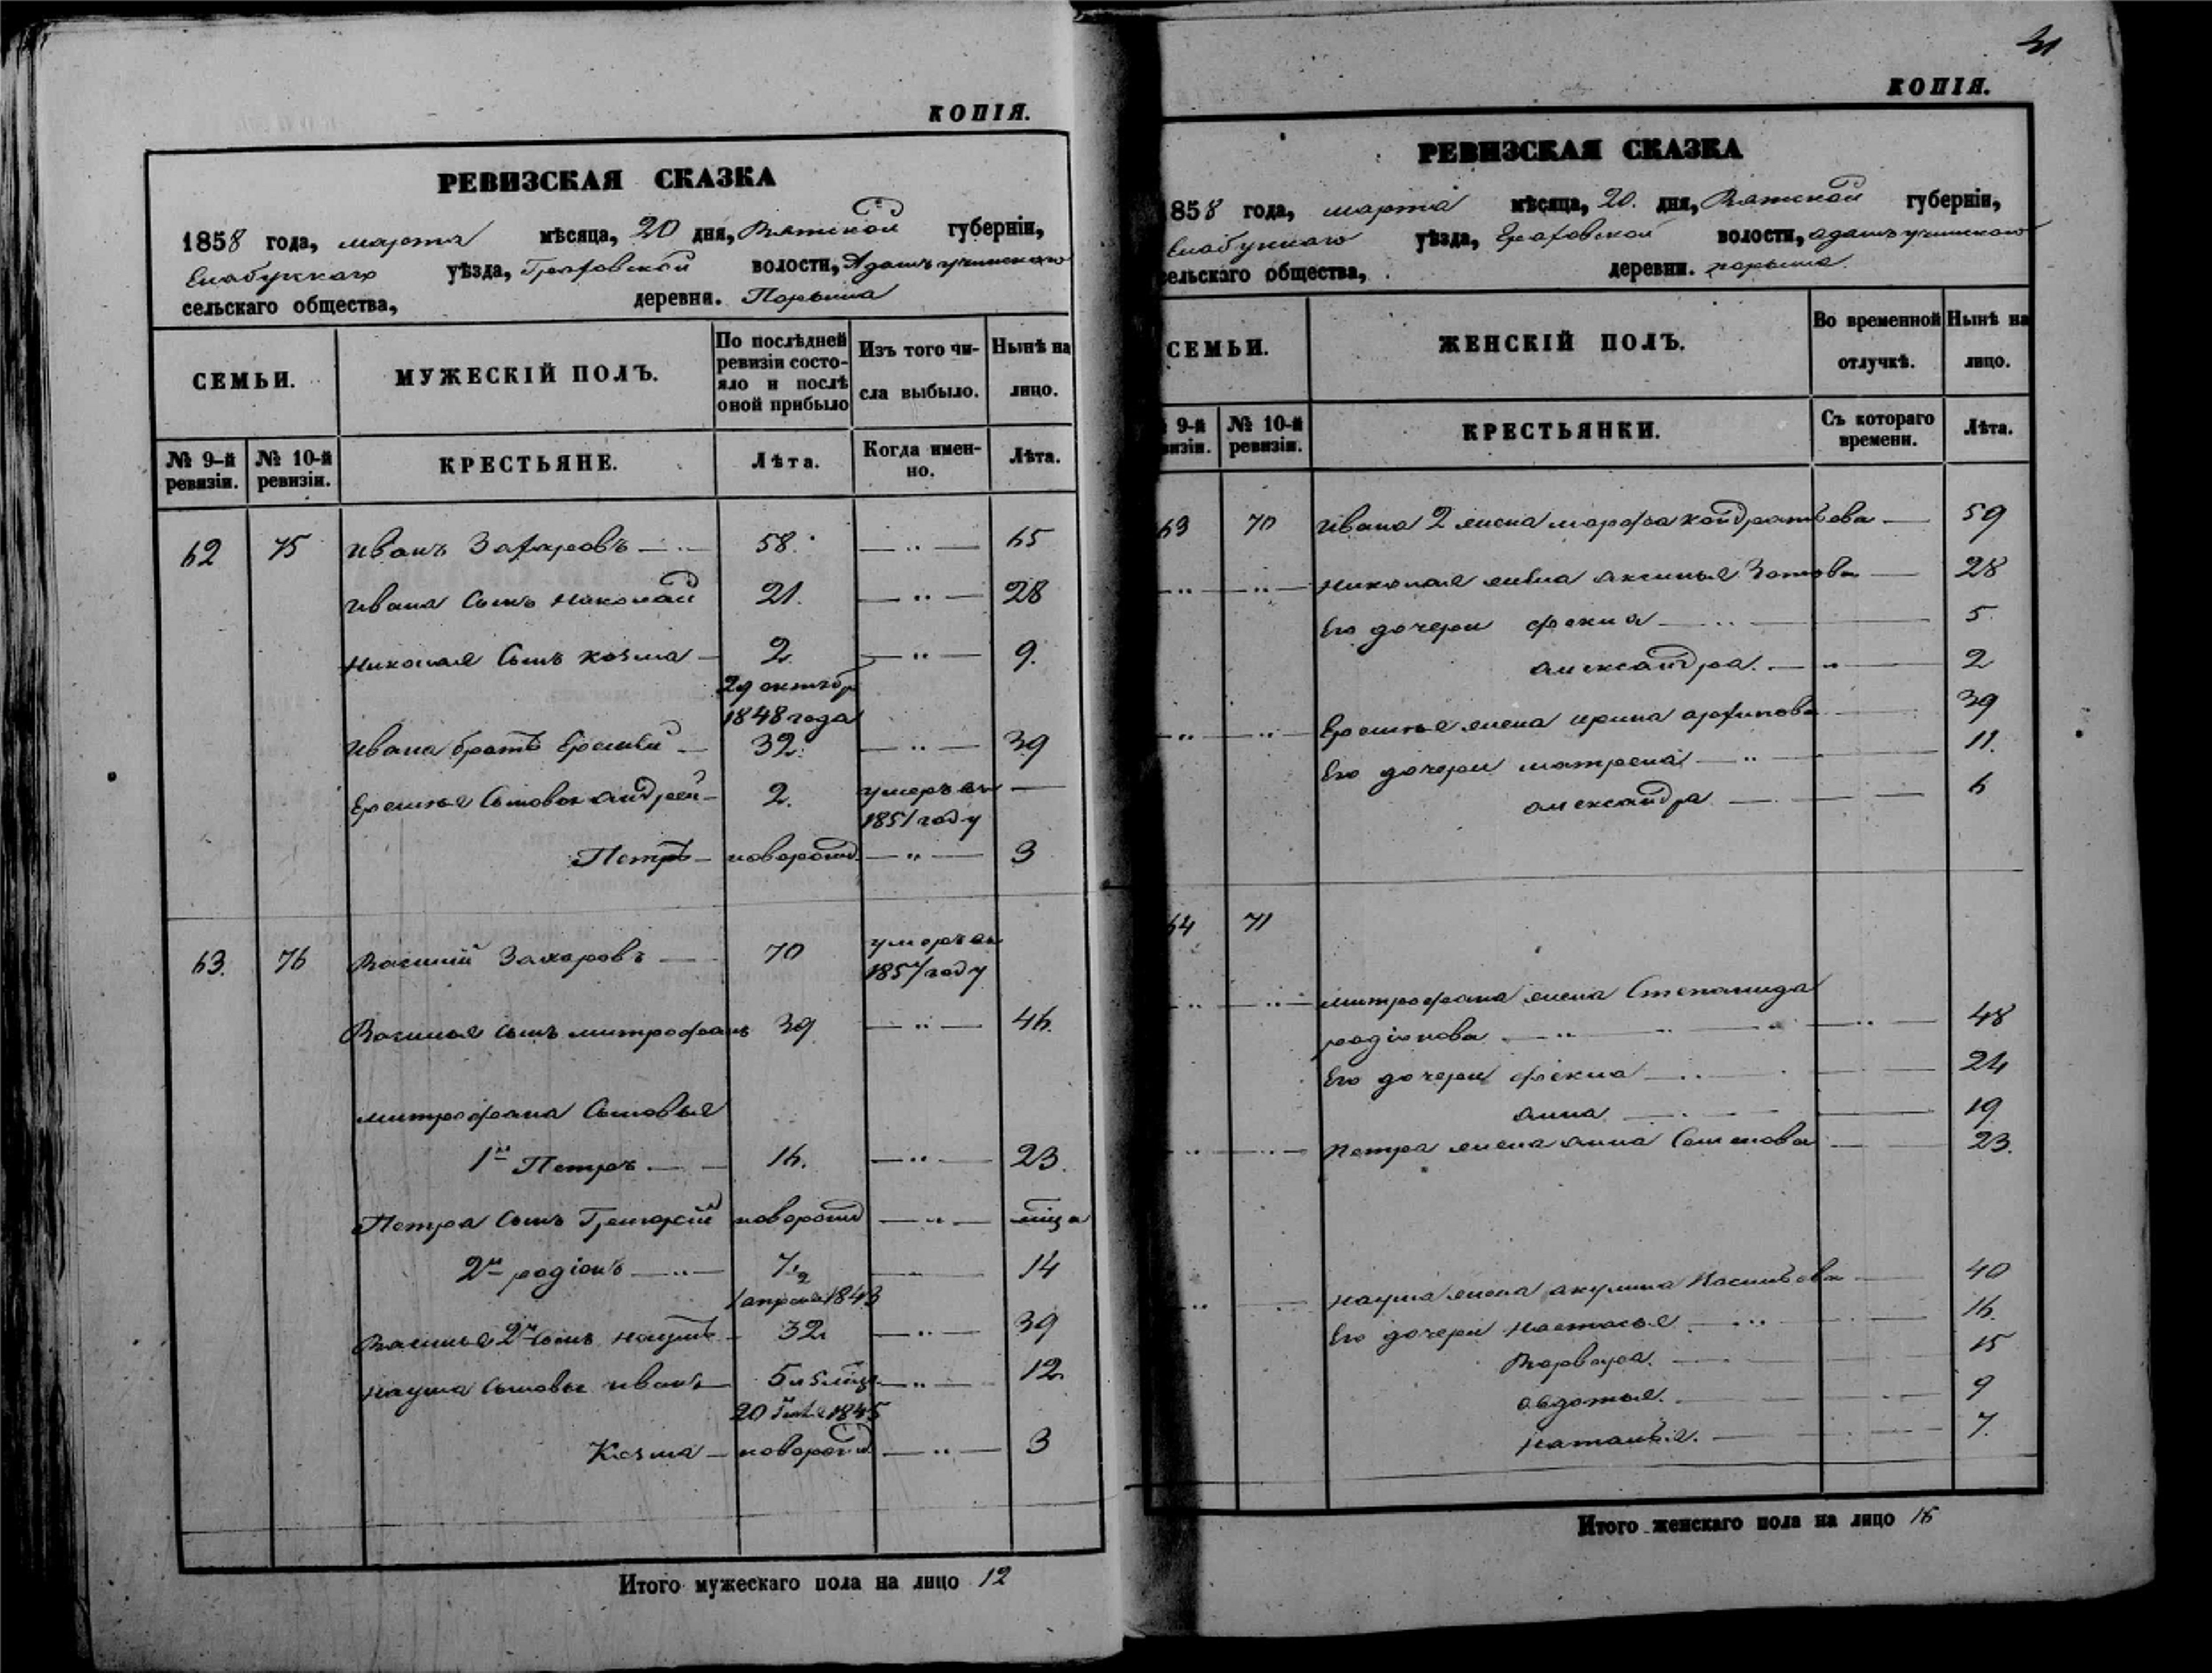 КОПІЯ.
РЕВИЗСКАЯ СКАЗКА
1858 года, марта мѣсяца, 20 дня, Вятской губерніи,
Елабужскаго уѣзда, Граховской волости,
сельскаго общества, деревни.
СЕМЬИ. МУЖЕСКІЙ ПОЛЪ. По послѣдней ревизіи состояло и послѣ оной прибыло Изъ того числа выбыло. Нынѣ на лицо.
№ 9-й ревизіи. № 10-й ревизіи. КРЕСТЬЯНЕ. Лѣта. Когда именно. Лѣта.
62 75 Иванъ Захаровъ — 58. — " — 65
Ивана сынъ Николай 21. — " — 28
Николая сынъ Козма — 2 — " — 9.
29 октяб
1848 года
Ивана братъ Еремѣй — 32. — " — 39
Еремѣя сыновья Андрей — 2. умеръ въ —
1851 году
Петръ — новорожд. — " — 3
63. 76 Василий Захаровъ — 70 умеръ въ
185 году
Василья сынъ Митрофанъ 39 — " — 46.
Митрофана сыновья
1й Петръ — 16. — " — 23.
Петра сынъ Григорій новорожд — " —
2й Родіонъ — " — 7 1/2 — 14
1 апреля 1843
Василья 2й сынъ Наумъ — 32 — " — 39
Наума сыновья Иванъ — 5 — " — 12
20 1845
Козма — новорожд. — " — 3
Итого мужескаго пола на лицо 12
КОПІЯ.
РЕВИЗСКАЯ СКАЗКА
858 года, марта мѣсяца, 20. дня, Вятской губерніи,
Елабужскаго уѣзда, Граховской волости,
сельскаго общества, деревни.
СЕМЬИ. ЖЕНСКІЙ ПОЛЪ. Во временной отлучкѣ. Нынѣ на лицо.
9-й ревизіи. № 10-й ревизіи. КРЕСТЬЯНКИ. Съ котораго времени. Лѣта.
63 70 Ивана 2 жена Марфа Кондратьева — 59
— " — — " — Николая жена Аксинья Зотова — 28
Его дочери Фекла — " — 5.
Александра. — " — 2
— " — — " — Еремѣя жена Ирина Архипова — 39
Его дочери Матрена — " — 11.
Александра — 6
64 71
— " — — " — Митрофана жена Степанида
Родіонова — " — 48
Его дочери Фекла — " — 24
Анна — 19
— " — — " — Петра жена Анна Семенова — 23.
" — Наума жена Акулина Васильева — 40
Его дочери Настасья — " — 16.
Варвара. — 15
Авдотья. — 9
Наталья. — 7.
Итого женскаго пола на лицо 16